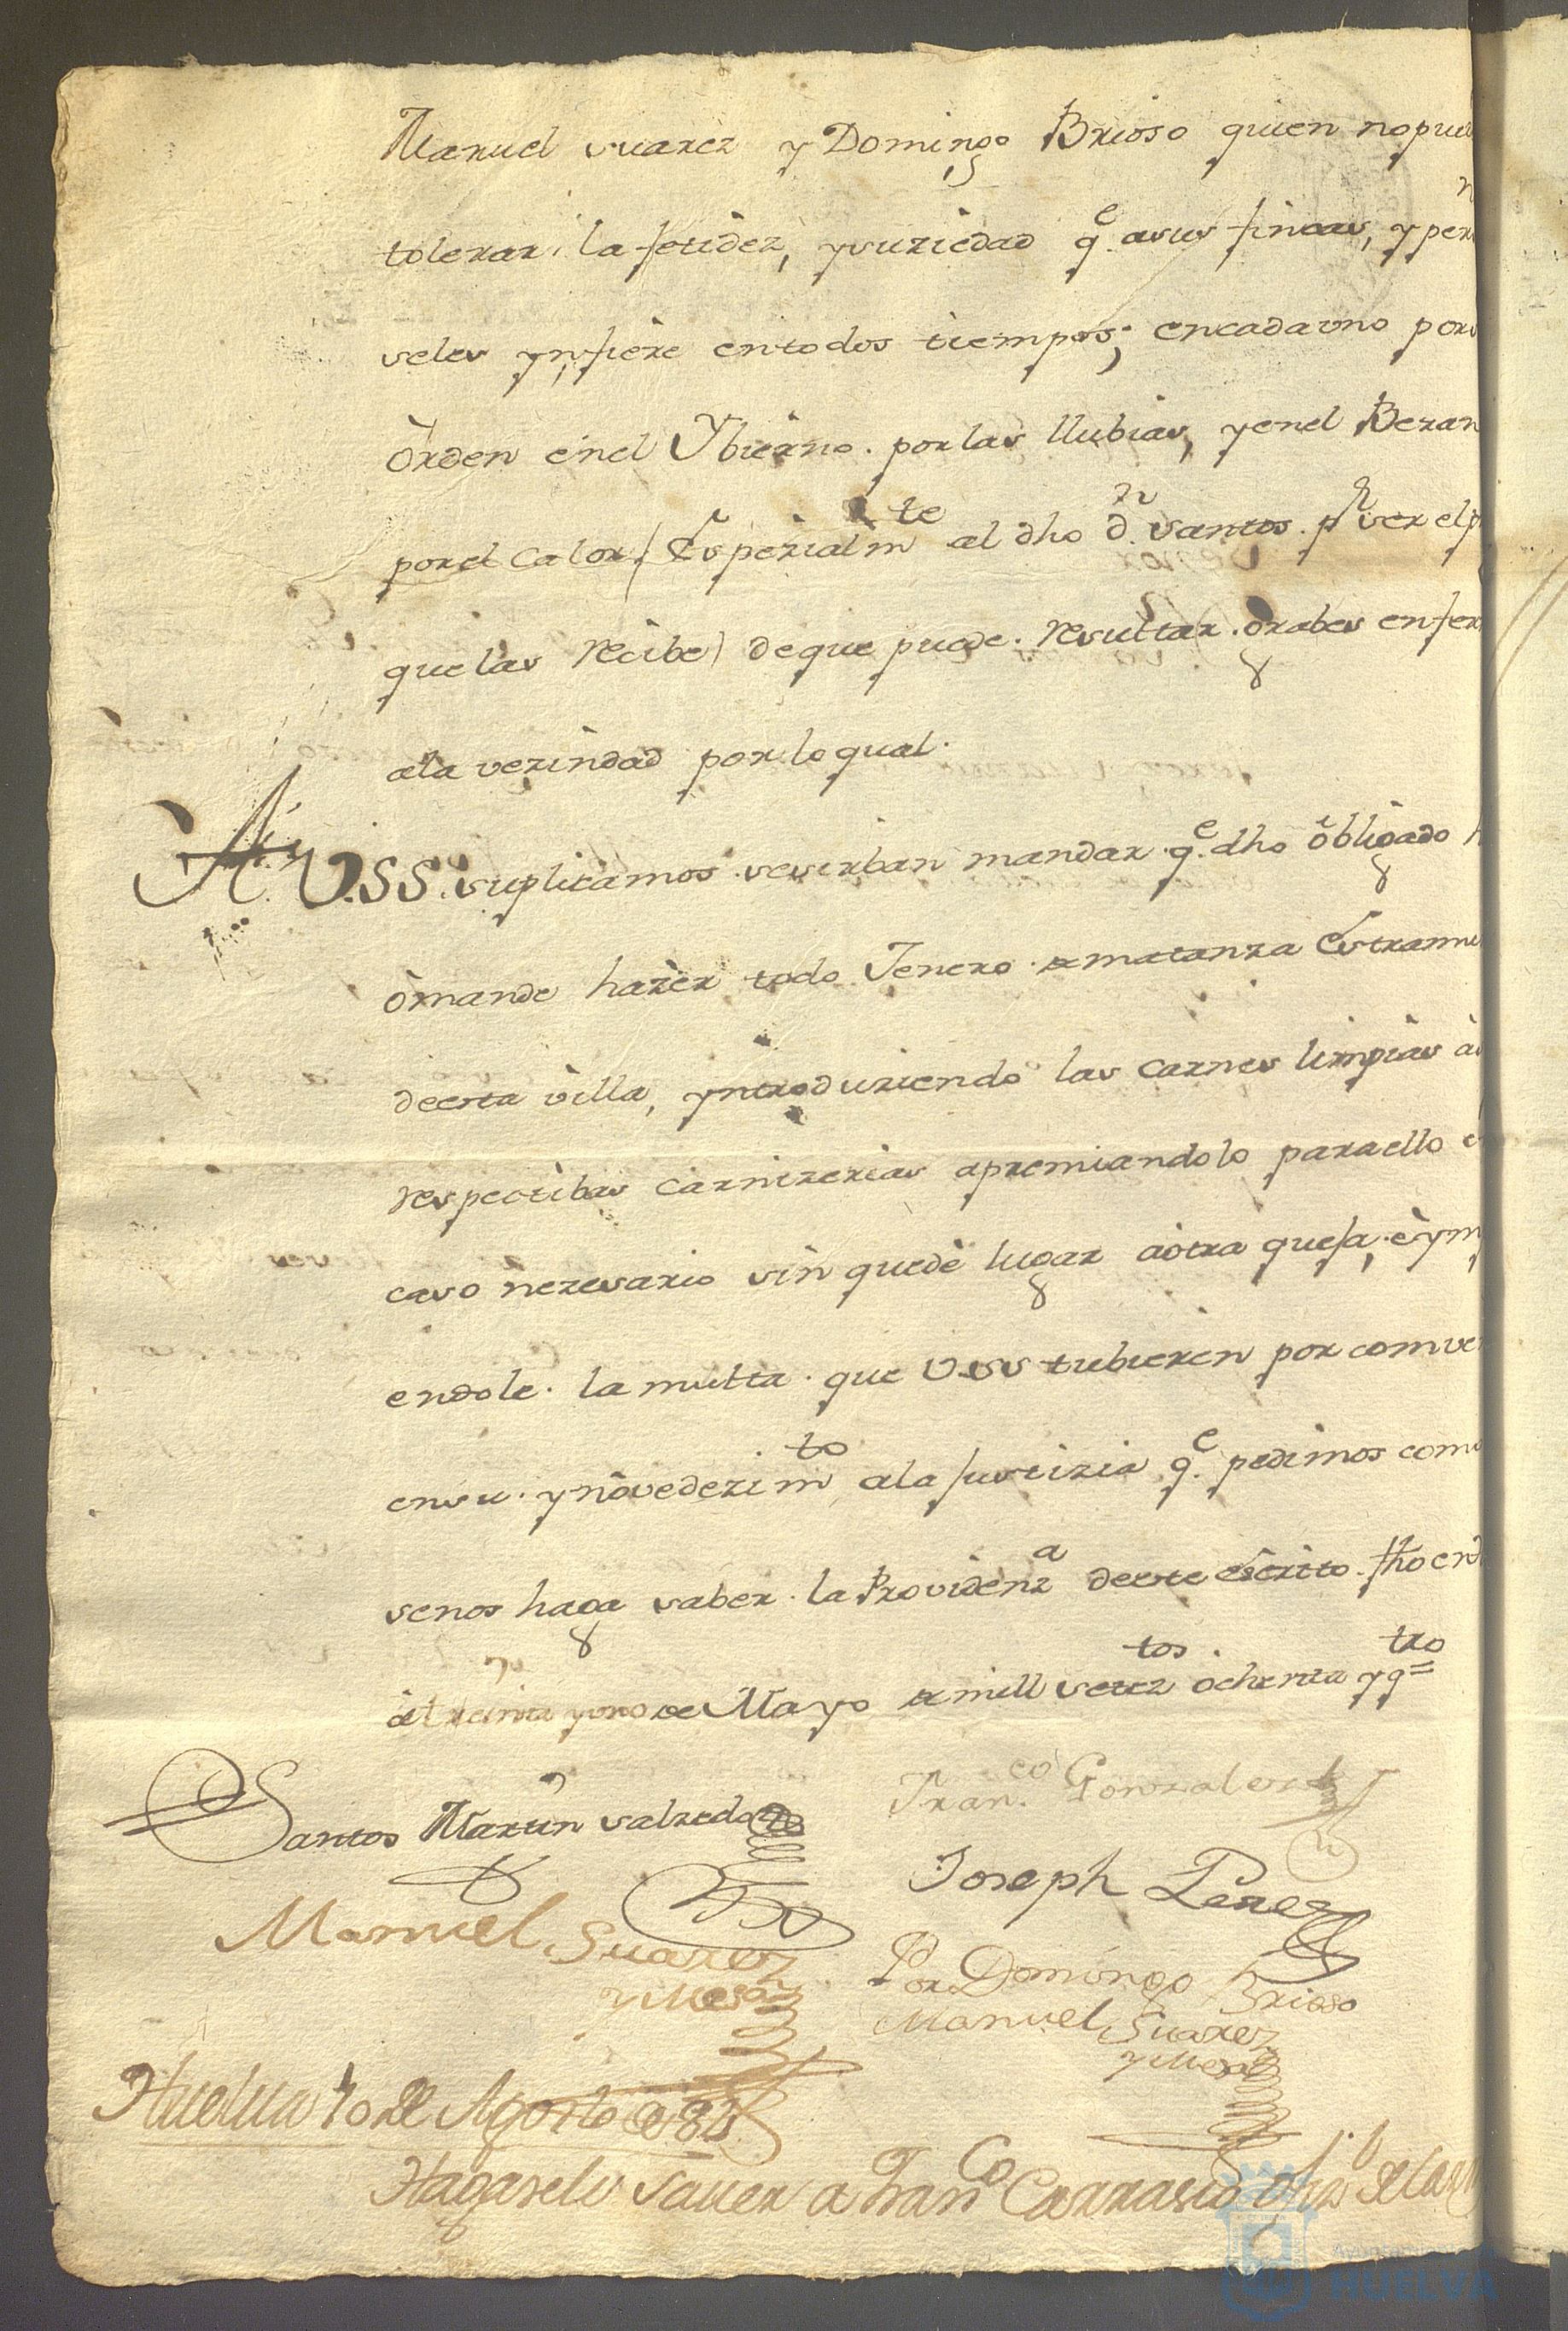 Manuel suarez y Domingo Brioso quien nopue
tolerar, la fetidez, ysuziedad q.e asus fincas, yper
seles ynfiere entodos tiempos; encadauno por
òrden enel Ybierno. porlas llubias, yenel Beran
porel Calor / Espezialm.te al dho d.n santos. p.r ser el
quelas recibe) deque puede. resultar. grabes enfer
ala vezindad porlo qual.
A V.SS. suplicamos sesirban mandar q.e dho òbligado h
òmande hazer todo Jenero de matanza Estramu
deesta villa, yntroduziendo las carnes limpias à
respectibas carnizerias apremiandolo paraello e
caso nezesario sin quede lugar àotra quefa, èym
endole. la multa. que V.SS tubieren por comve
ensu. ynòvedezim.to ala Justizia q.e pedimos com
senos haga saber. la Providenz.a deeste escrito. fho en
àtreinta yuno de Mayo de mill setez.tos òchenta yq.tro
Santos Martin salzedo
Fran.co Gonzales
Joseph Perez
Manuel Suarez
y Mesa
Por Domingo Brioso
Manuel Suarez
y Mesa
Huelua 10 de Agosto de 84
Hagasele sauer a Fran.co Carrasco de la
Ayuntamiento
HUELVA